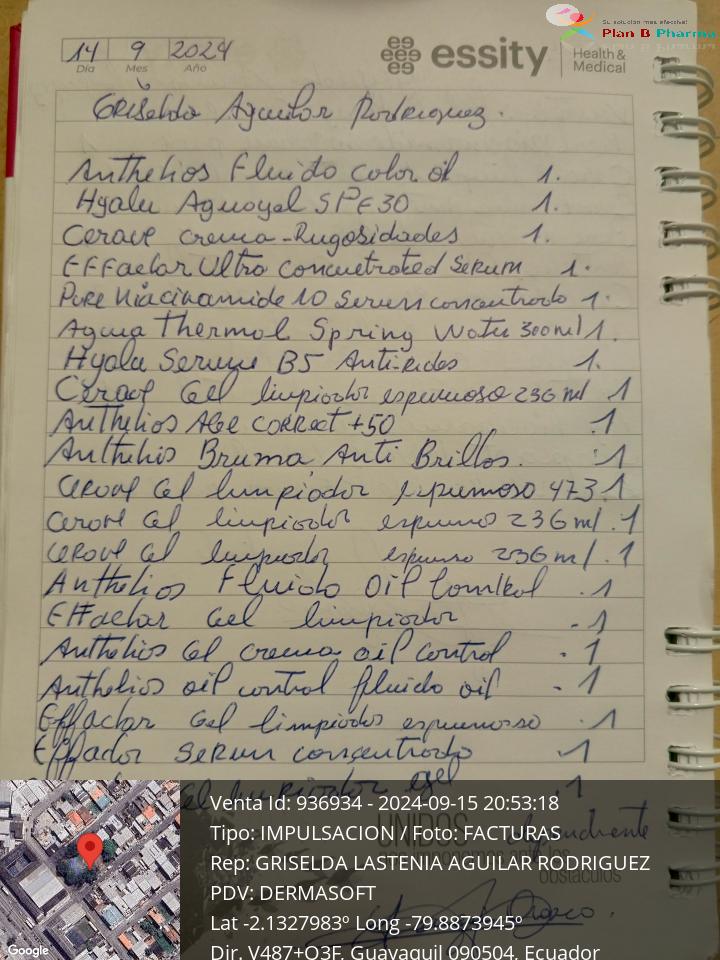 Su solución más efectiva!
Plan B Pharma
14 9 2024
Día Mes Año
essity
Health &
Medical
Griselda Aguilar Rodriguez.
Anthelios Fluido color oil 1.
Hyalu Aguagel SPF 30 1.
Cerave crema-Rugosidades 1.
Effaclar Ultra Concuetrated Serum 1.
Pure Niacinamide 10 Serum concentrado 1.
Agua Thermal Spring Water 300ml 1.
Hyalu Serum B5 Anti-rides 1.
Cerave Gel limpiador espumoso 236 ml 1
Anthelios Age correct +50 .1
Anthelios Bruma Anti Brillos. .1
Cerave Gel limpiador espumoso 473.1
Cerave Gel limpiador espumoso 236 ml .1
Cerave Gel limpiador espumoso 236 ml .1
Anthelios Fluido Oil Control .1
Effaclar Gel limpiador .1
Anthelios Gel crema oil control .1
Anthelios oil control fluido oil .1
Effaclar Gel limpiador espumosso .1
Effaclar Serum concentrado .1
Gel limpiador .1
UNIDOS
obstáculos
Orozco.
Venta Id: 936934 - 2024-09-15 20:53:18
Tipo: IMPULSACION / Foto: FACTURAS
Rep: GRISELDA LASTENIA AGUILAR RODRIGUEZ
PDV: DERMASOFT
Lat -2.1327983º Long -79.8873945º
Dir. V487+Q3F, Guayaquil 090504, Ecuador
Google